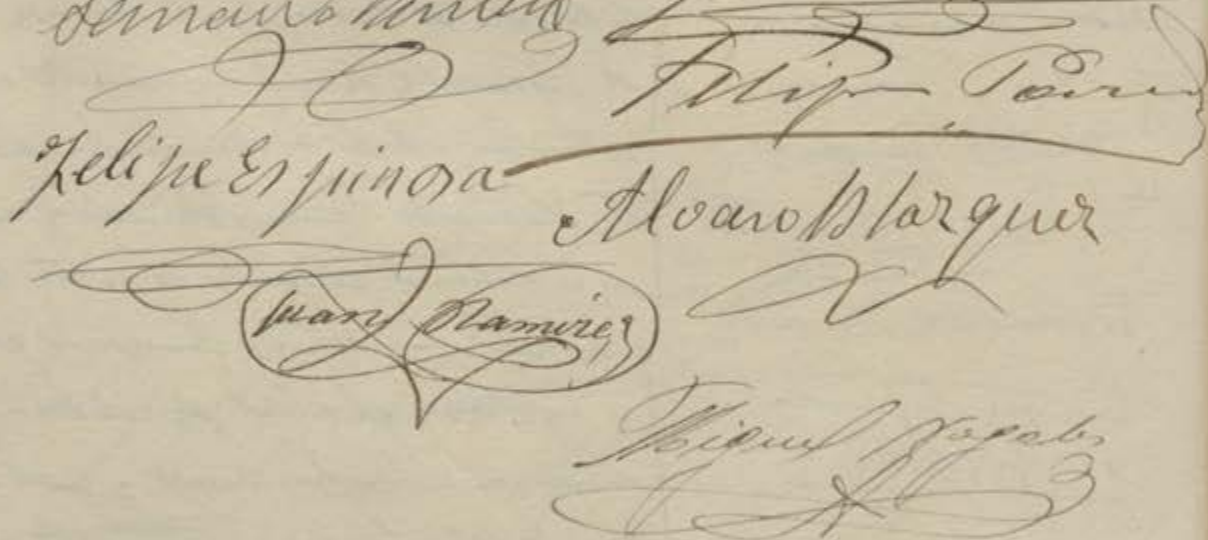 Felipe
Felipe Espinosa
Alvaro Blazquez
Juan Ramirez
Miguel Nogales